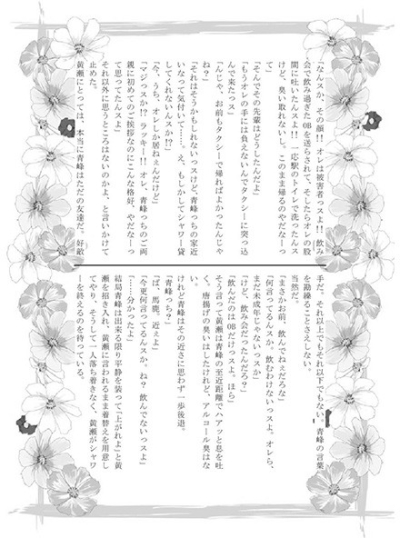 「なんスか、その顔!! オレは被害者っスよ!! 飲み
会で飲み過ぎたOBを送らされて、そしたらオレの股
間に吐いたんスよ!! 一応駅のトイレで洗ったんス
けど、臭い取れないし。このまま帰るのやだなーっ
て」
「そんでその先輩はどうしたんだよ」
「もうオレの手には負えないんでタクシーに突っ込
んで来たっス」
「んじゃ、お前もタクシーで帰ればよかったんじゃ
ね?」
「それはそうかもしれないっスけど、青峰っちの家近
いなって気付いて……。え、もしかしてシャワー貸
してくれないんスか!?」
「今、うち、オレしか居ねぇんだけど」
「マジっスか!? ラッキー!! オレ、青峰っちのご両
親に初めてのご挨拶なのにこんな格好、やだなーっ
て思ってたんスよ」
それ以外に思うところはないのかよ、と言いかけて
止めた。
黄瀬にとっては、本当に青峰はただの友達だ。好敵
手だ。それ以上でもそれ以下でもない。青峰の言葉
を勘繰ることさえしない。
当然だ。
「まさかお前、飲んでねぇだろな」
「何言ってるんスか。飲むわけないっスよ。オレら、
まだ未成年じゃないっスか」
「けど、飲み会だったんだろ」
「飲んだのはOBだけっスよ。ほら」
そう言って黄瀬は青峰の至近距離でハアッと息を吐
く。唐揚げの臭いはしたけれど、アルコール臭はな
い。
けれど青峰はその近さに思わず一歩後退。
「青峰っち?」
「ば、馬鹿、近ぇよ」
「今更何言ってるんスか、ね? 飲んでないっスよ」
「……分かったよ」
結局青峰は出来る限り平静を装って「上がれよ」と黄
瀬を招き入れ、黄瀬に言われるまま着替えを用意し
てやり、そうして一人落ち着きなく、黄瀬がシャワ
ーを終えるのを待っている。